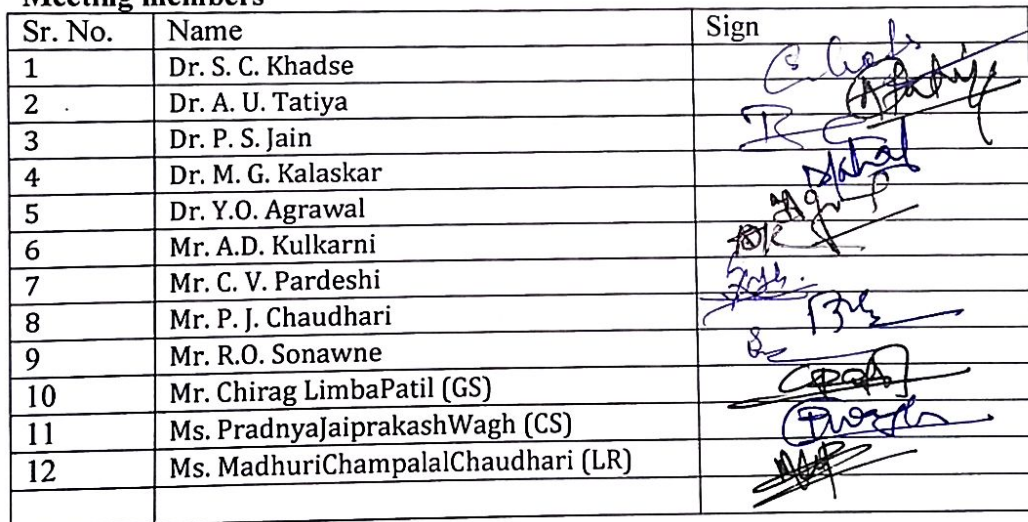 Meeting members
Sr. No. Name Sign
1 Dr. S. C. Khadse
2 Dr. A. U. Tatiya
3 Dr. P. S. Jain
4 Dr. M. G. Kalaskar
5 Dr. Y.O. Agrawal
6 Mr. A.D. Kulkarni
7 Mr. C. V. Pardeshi
8 Mr. P. J. Chaudhari
9 Mr. R.O. Sonawne
10 Mr. Chirag LimbaPatil (GS)
11 Ms. PradnyaJaiprakashWagh (CS)
12 Ms. MadhuriChampalalChaudhari (LR)